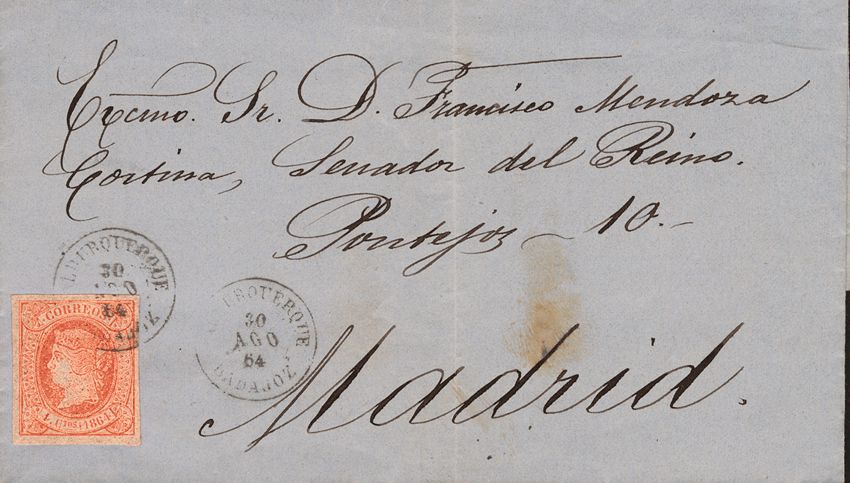 Excmo. Sr. D. Francisco Mendoza
Cortina, Senador del Reino.
Pontejos - 10.-
Madrid.
LBURQUERQUE
30
AGO
64
BURQUERQUE
30
AGO
64
BADAJOZ
CORREOS
4 CUARTOS 1864